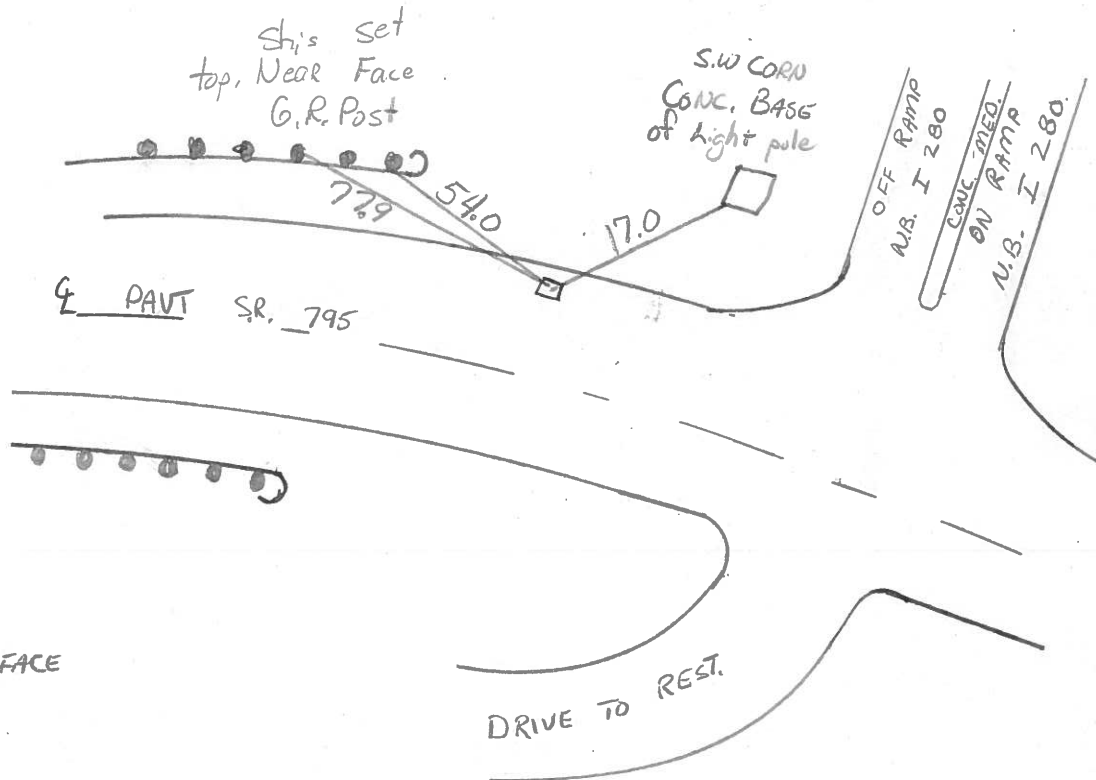 Sh,'s set
top, Near Face
G.R. Post
S.W CORN
CONC. BASE
of Light pole
77.9
54.0
17.0
OFF RAMP
N.B. I 280
CONC. MED.
ON RAMP
N.B. I 280.
℄ PAVT S.R. 795
FACE
DRIVE TO REST.